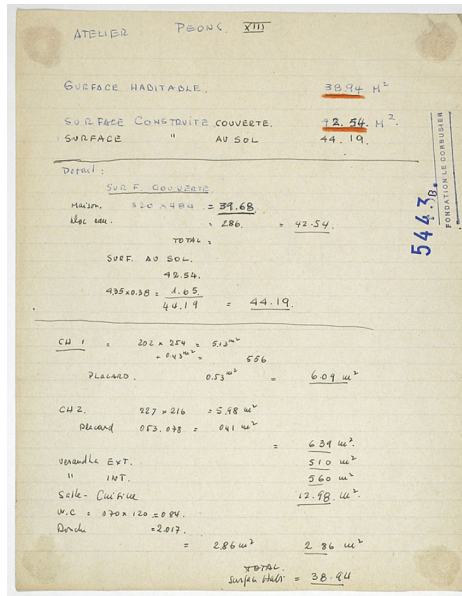 ATELIER PEONS. XIII
SURFACE HABITABLE. 38.94 M²
SURFACE CONSTRUITE COUVERTE. 42.54. M².
SURFACE " AU SOL 44.19.
Detail:
SURF. COUVERTE
Maison. 820 x 484 = 39.68
bloc eau. = 286. = 42.54.
TOTAL =
SURF. AU SOL.
42.54.
4.35 x 0.38 = 1.65.
44.19 = 44.19.
CH 1 = 202 x 254 = 5.13 m²
+ 0.43 m² = 556
PLACARD. 0.53 m² = 6.09 m²
CH 2. 227 x 216 = 5.98 m²
placard 053.078 = 041 m²
= 639 m².
Verandha EXT. 510 m²
" INT. 560 m²
Salle-Cuisine 12.98. m².
W.C = 070 x 120 = 0.84.
Douche = 2.017.
= 2.86 m² 2 86 m²
TOTAL.
Surface Habi = 38.94
5443 B.
FONDATION LE CORBUSIER